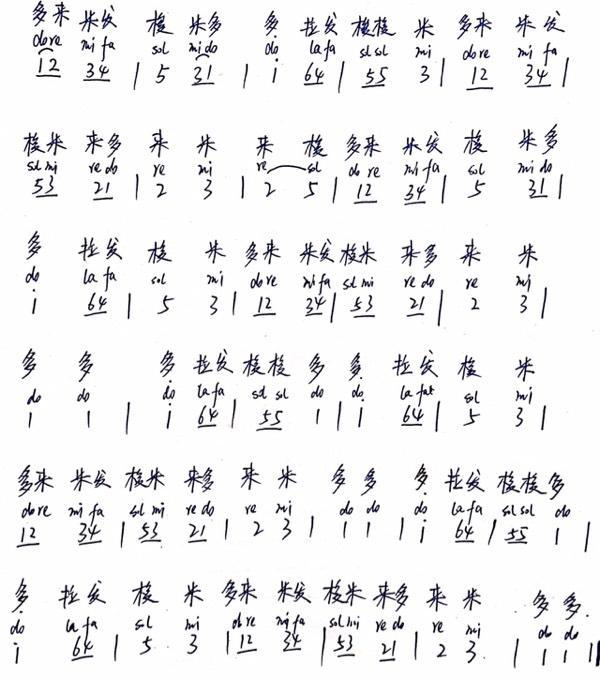 多来 米发 梭 米多 多 拉发 梭梭 米 多来 米发
dore mi fa sol mido do la fa sl sl mi dore mi fa
12 34 | 5 31 | i 64 | 55 3 | 12 34 |
梭米 来多 来 米 来 梭 多来 米发 梭 米多
sl mi re do re mi re sol do re mi fa sol mi do
53 21 | 2 3 | 2 5 | 12 34 | 5 31 |
多 拉发 梭 米 多来 米发 梭米 来多 来 米
do la fa sol mi dore mi fa sl mi re do re mi
i 64 | 5 3 | 12 34 | 53 21 | 2 3 |
多 多 多 拉发 梭梭 多 多 拉发 梭 米
do do do la fa sl sl do do la fa sol mi
1 1 | i 64 | 55 1 | i 64 | 5 3 |
多来 米发 梭米 来多 来 米 多 多 多 拉发 梭梭 多
dore mi fa sl mi re do re mi do do do la fa sol sol do
12 34 | 53 21 | 2 3 | 1 1 | i 64 | 55 1 |
多 拉发 梭 米 多来 米发 梭米 来多 来 米 多 多
do la fa sol mi do re mi fa sol mi re do re mi do do
i 64 | 5 3 | 12 34 | 53 21 | 2 3 | 1 1 ||